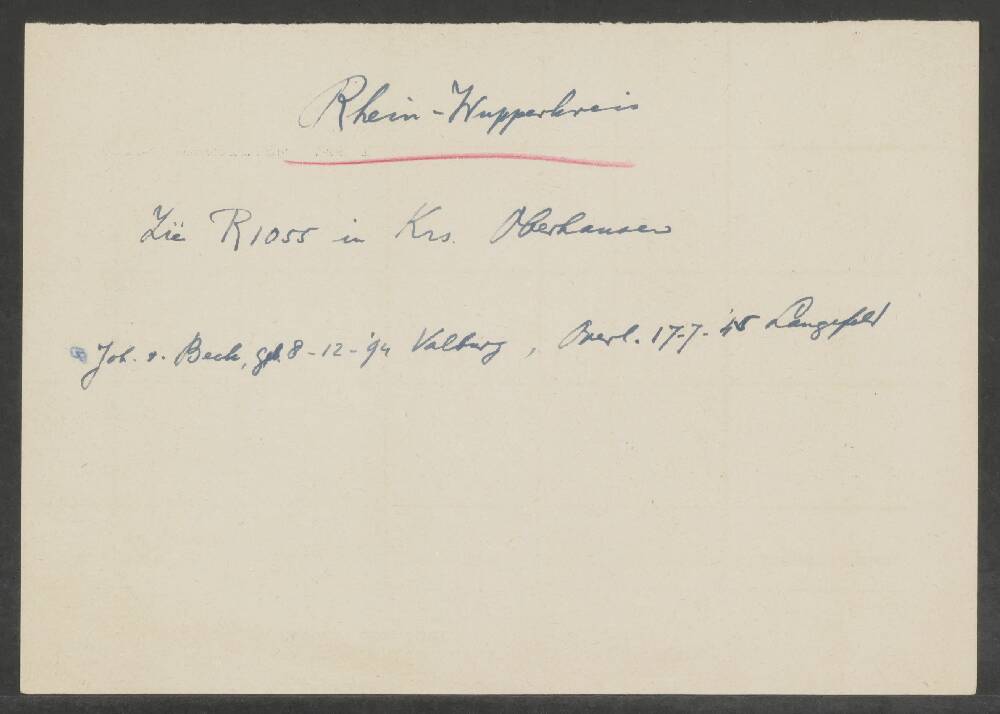 Rhein-Wupperkreis
Zie R1055 in Krs. Oberhausen
Joh. v. Beek, geb. 8-12-'94 Valburg, Overl. 17-7-'45 Langefeld